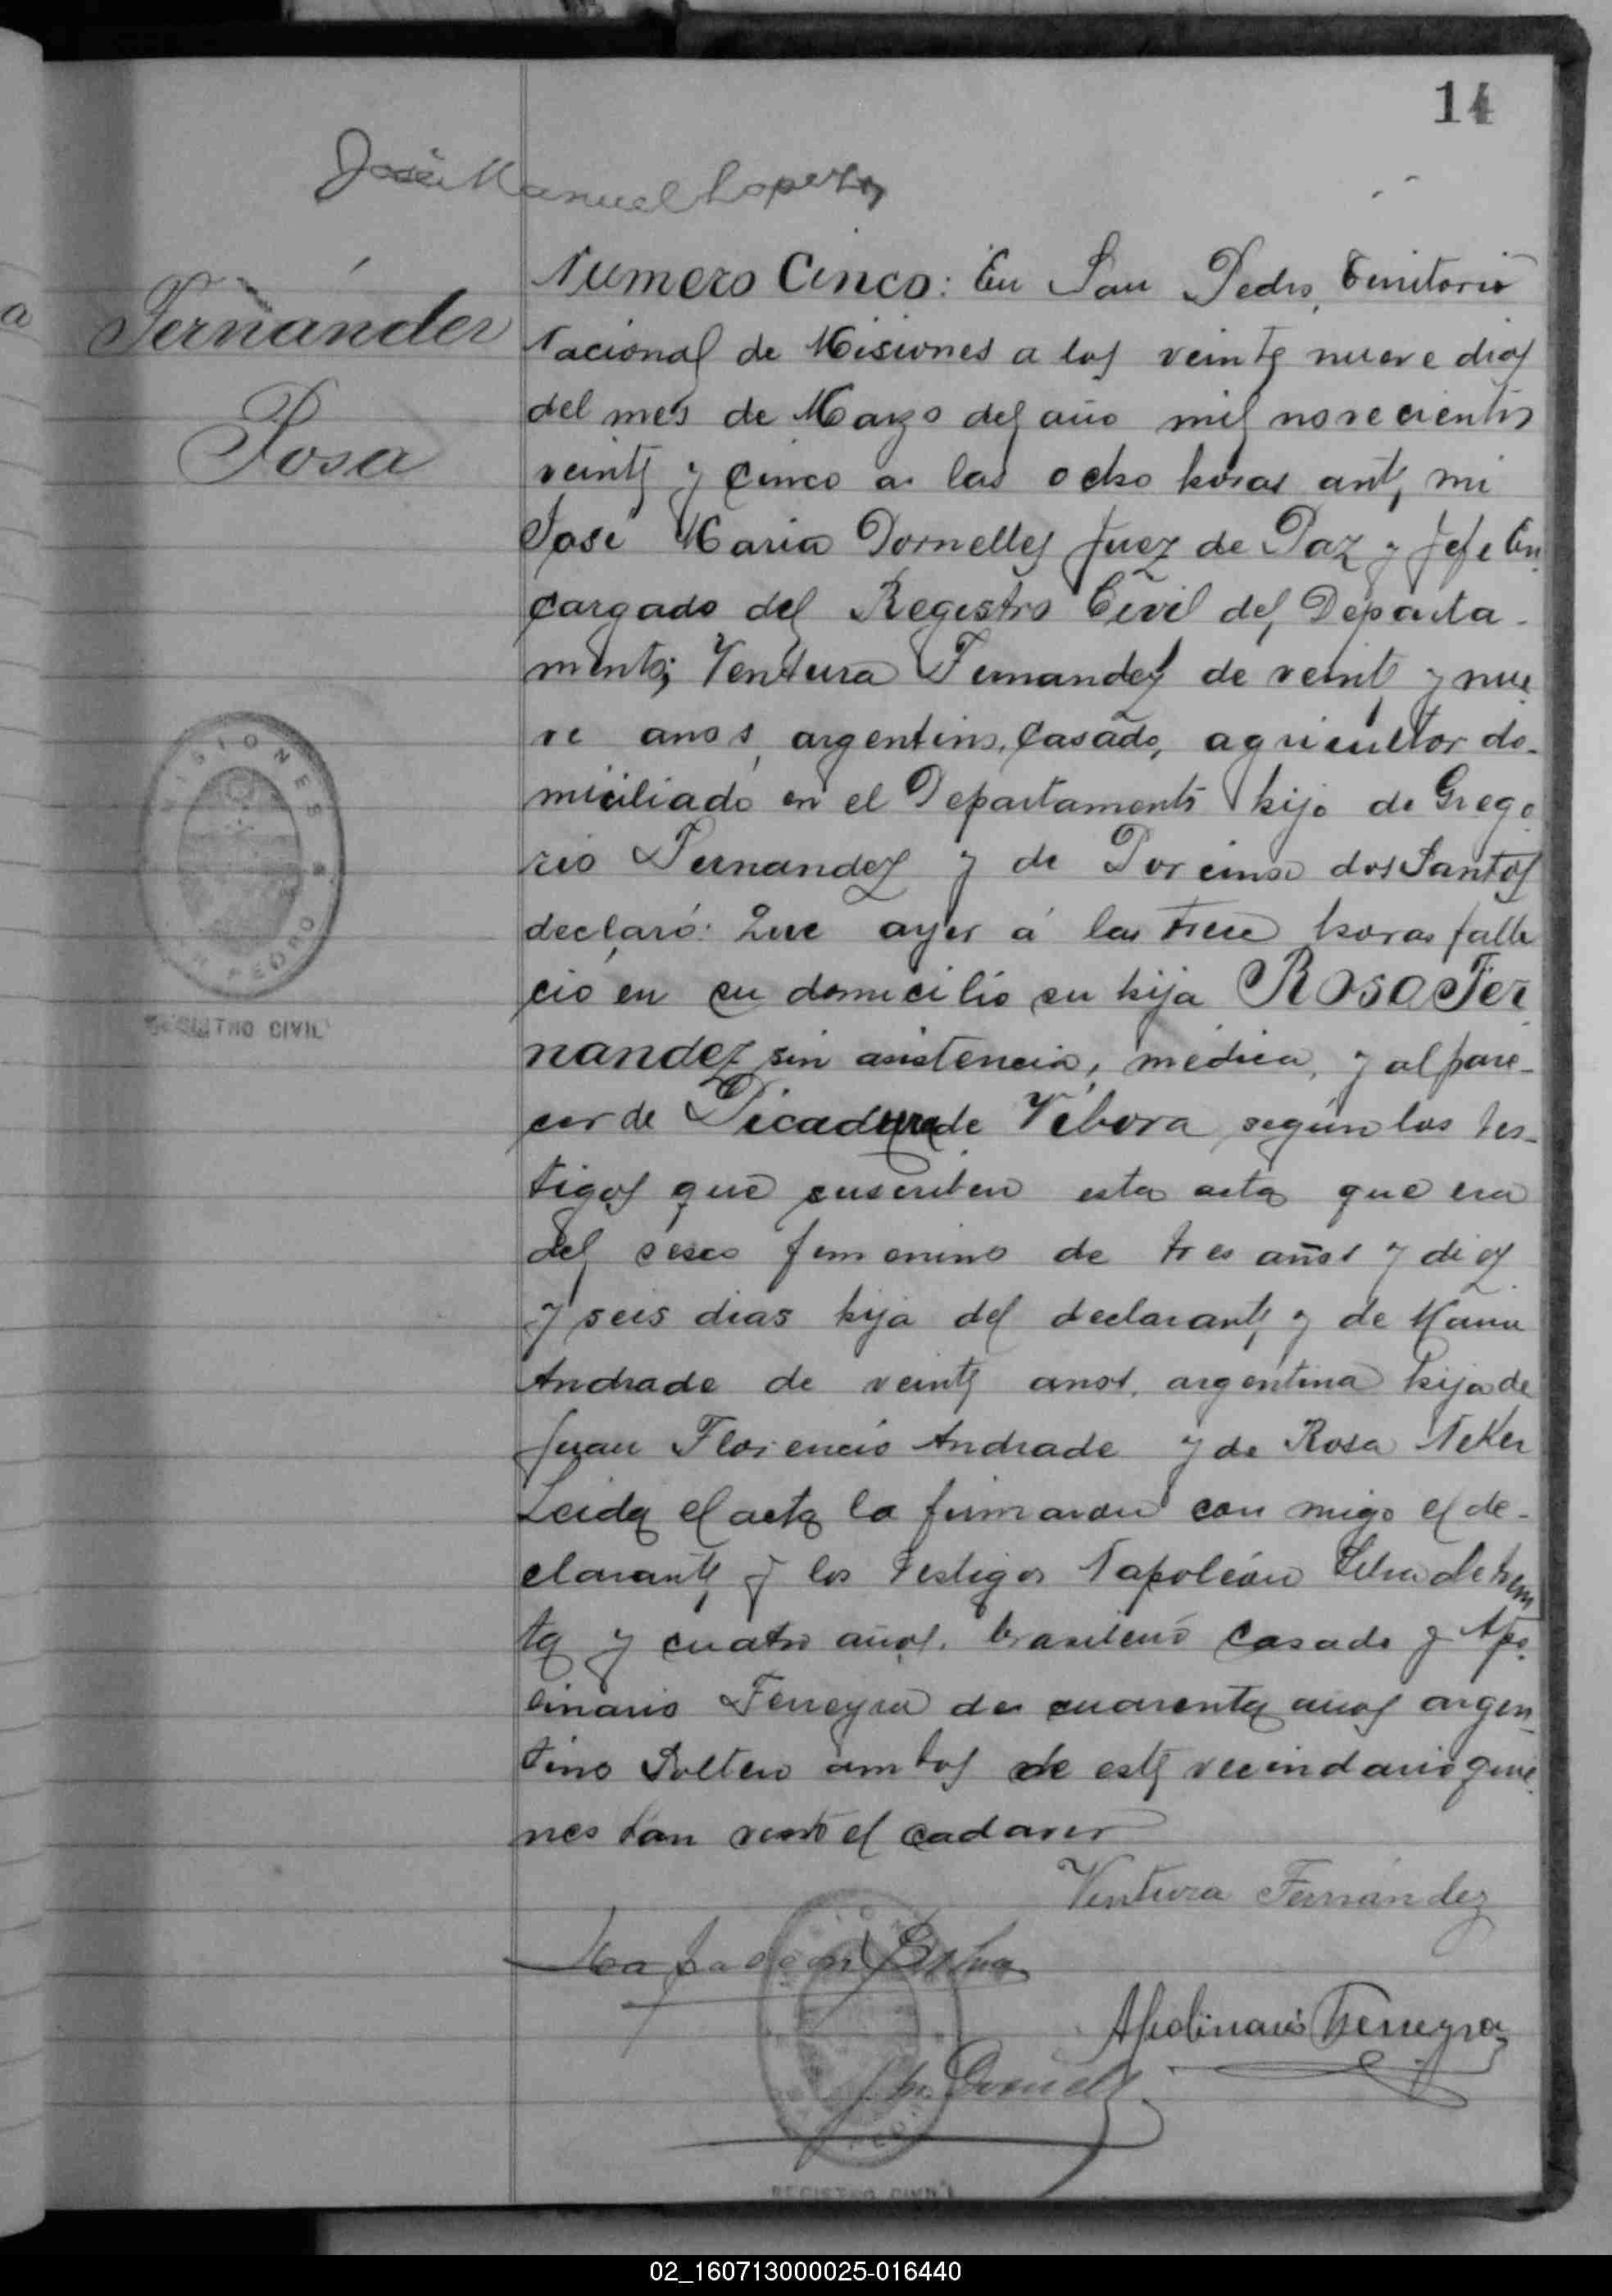 14
José Manuel Lopez
Fernández
Rosa
Numero Cinco: En San Pedro, Territorio
Nacional de Misiones a los veinte nueve dias
del mes de Marzo del año mil novecientos
veinte y cinco a las ocho horas ante mi
José Maria Dornelles Juez de Paz y Jefe En
cargado del Registro Civil del Departa-
mento; Ventura Fernandez de veinte y nue
ve anos, argentino, casado, agricultor do-
miciliado en el Departamento hijo de Grego
rio Fernandez y de dos Santos
declaró: Que ayer á las trece horas falle
ció en su domicilio su hija Rosa Fer
nandez sin asistencia, médica, y al pare-
cer de Picadura de Víbora según los tes-
tigos que suscriben esta acta que era
del sexo femenino de tres años y diez
y seis dias hija del declarante y de Maria
Andrade de veinte anos, argentina hija de
Juan Florencio Andrade y de Rosa Neker
Leida el acta la firmaron con migo el de-
clarante y los testigos Napoleón Silva de trein
ta y cuatro años, brasileño casado y Apo
linario Ferreyra de cuarenta años argen-
tino Soltero ambos de este vecindario quie
nes han visto el cadaver
Ventura Fernández
Napoleon Silva
Apolinario Ferreyra
J. M. Dornelles
MISIONES
SAN PEDRO
REGISTRO CIVIL
REGISTRO CIVIL
02_160713000025-016440